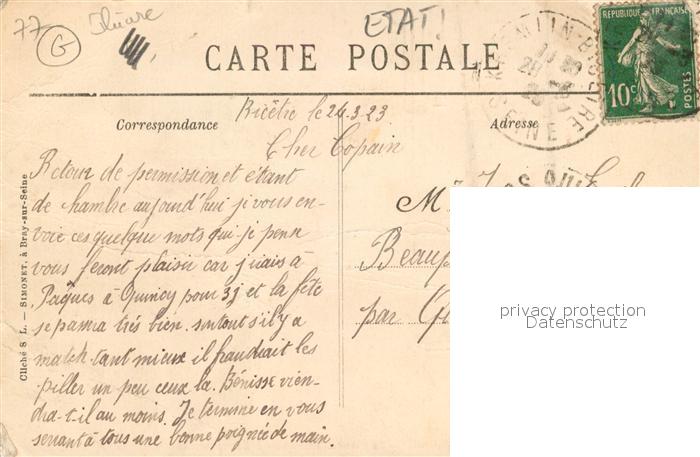 77 G
ETAT!
CARTE POSTALE
REPUBLIQUE FRANÇAISE
10c POSTES
Correspondance
Adresse
Bicêtre le 24.3.23
Cher Copain
Retour de permission et étant
de chambre aujourd'hui je vous en-
voie ces quelque mots qui je pense
vous feront plaisir car j'irais à
Pâques à Quincy pour 3j et la fête
se passera très bien surtout s'il y a
match tant mieux il fraudrait les
piller un peu ceux la. Bénisse vien-
dra-t-il au moins. Je termine en vous
serrant à tous une bonne poignée de main.
M
Beaup
par Qu
Cliché S L. — SIMONET, à Bray-sur-Seine
privacy protection
Datenschutz